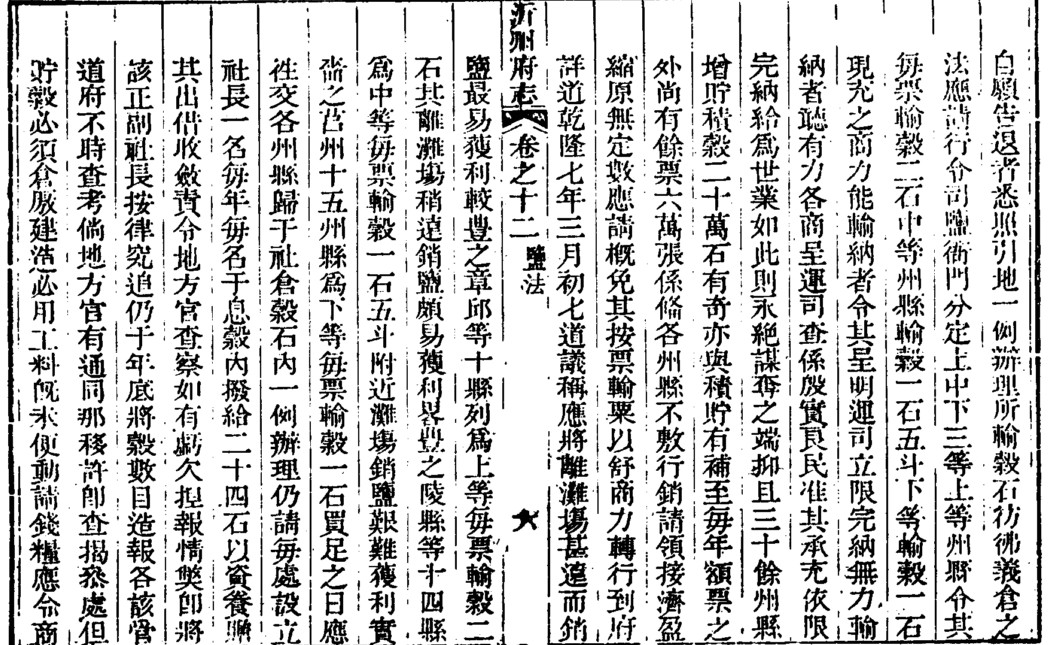 自願告退者悉照引地一例辦理所輸穀石彷彿義倉之
法應請行令司鹽衙門分定上中下三等上等州縣令其
每票輸穀二石中等州縣輸穀一石五斗下等輸穀一石
現充之商力能輸納者令其呈明運司立限完納無力輸
納者聽有力各商呈運司查係殷實良民准其承充依限
完納給爲世業如此則永絕謀奪之端抑且三十餘州縣
增貯積穀二十萬石有奇亦與積貯有補至每年額票之
外尚有餘票六萬張係備各州縣不敷行銷請領接濟盈
縮原無定數應請概免其按票輸粟以舒商力轉行到府
詳道乾隆七年三月初七道議稱應將離灘場甚遠而銷
沂州府志 卷之十二 鹽法 六
鹽最易獲利較豊之章邱等十縣列爲上等每票輸穀二
石其離灘場稍遠銷鹽頗易獲利畧豊之陵縣等十四縣
爲中等每票輸穀一石五斗附近灘場銷鹽艱難獲利實
嗇之莒州十五州縣爲下等每票輸穀一石買足之日應
徃交各州縣歸于社倉穀石內一例辦理仍請每處設立
社長一名每年每名于息穀內撥給二十四石以資養贍
其出借收斂責令地方官查察如有虧欠捏報情獘卽將
該正副社長按律究追仍于年底將穀數目造報各該管
道府不時查考倘地方官有通同那移許卽查揭叅處但
貯穀必須倉廒建造必用工料旣未便動請錢糧應令商